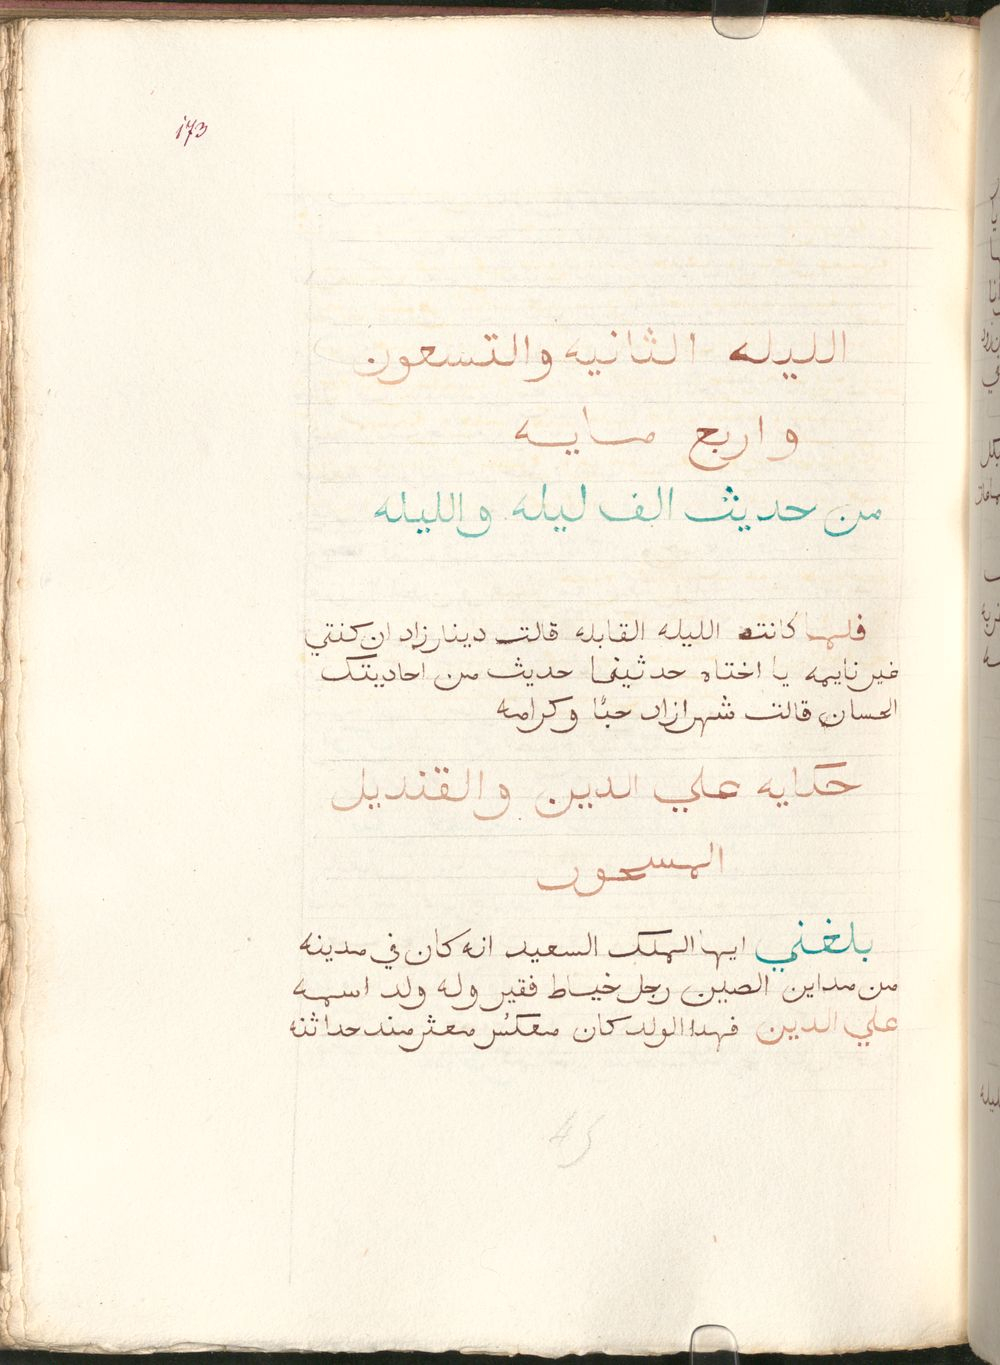 173
الليله الثانيه والتسعون
واربع مايه
من حديث الف ليله والليله
فلما كانت الليله القابله قالت دينارزاد ان كنتي
غير نايمه يا اختاه حدثينا حديث من احاديتك
الحسان قالت شهرازاد حبًا وكرامه
حكايه علي الدين والقنديل
المسحور
بلغني ايها الملك السعيد انه كان في مدينه
من مداين الصين رجل خياط فقير وله ولد اسمه
علي الدين فهدا الولد كان معكس معثر مند حداثته
45